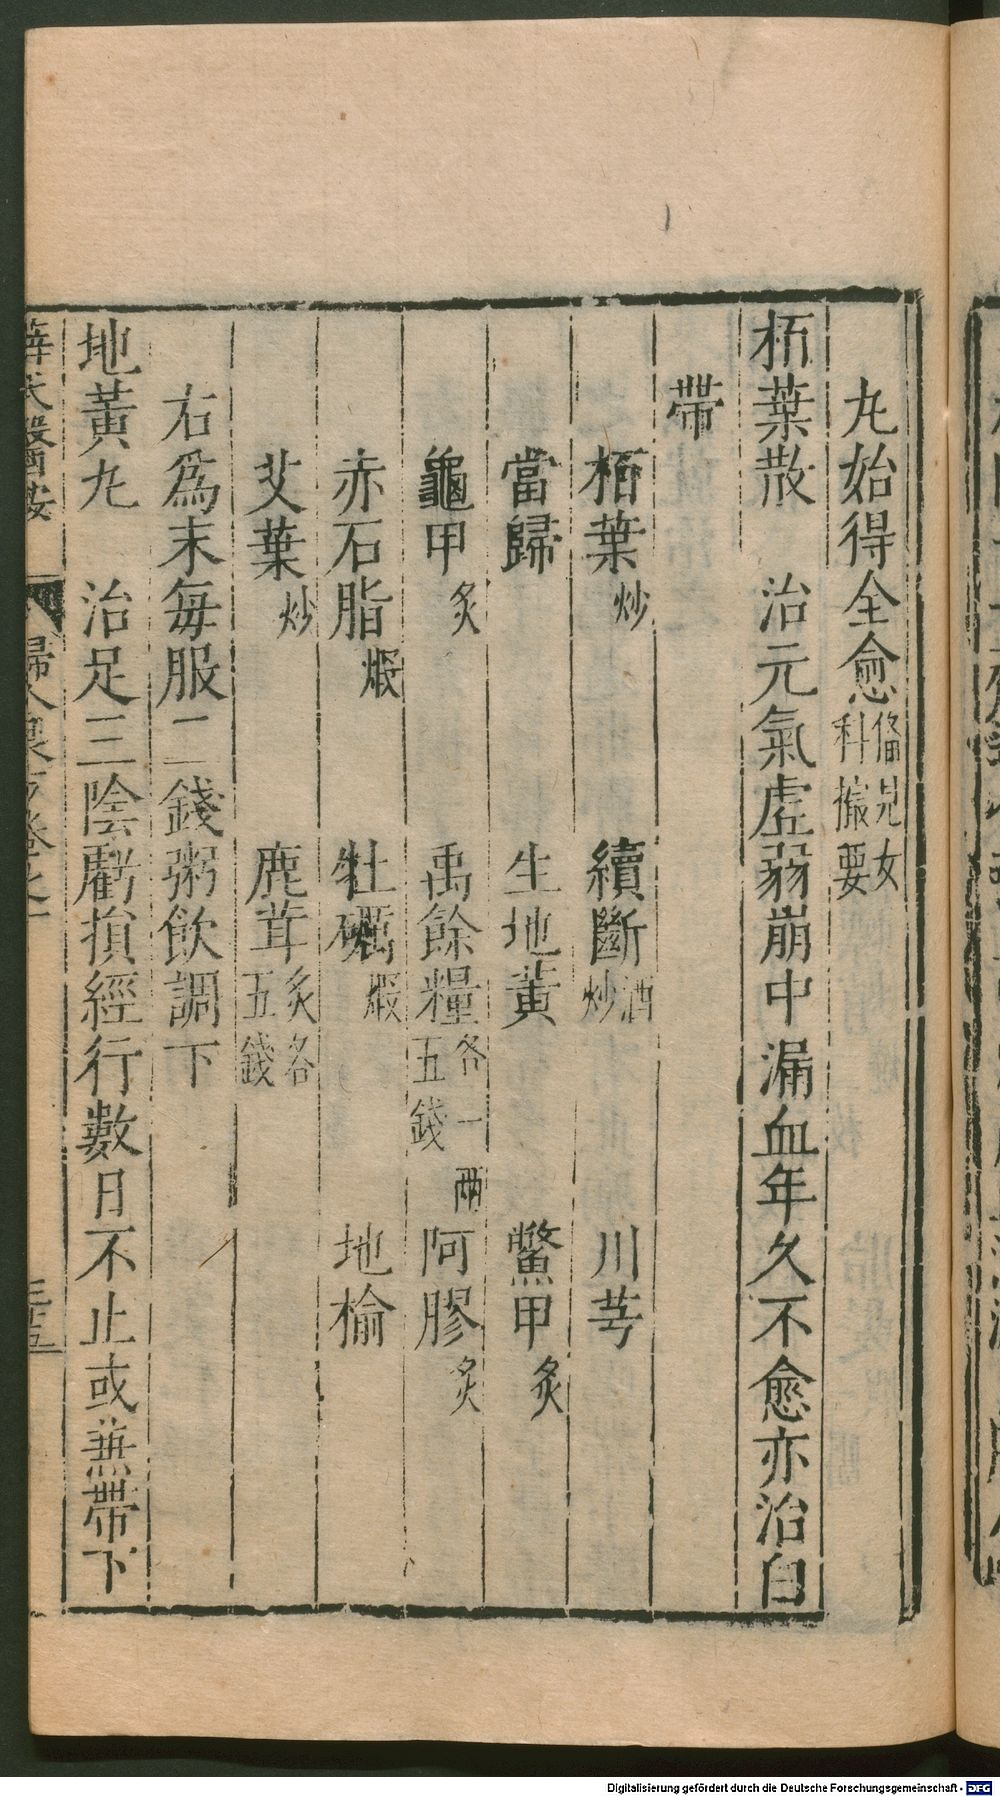 丸始得全愈備見女科撮要
栢葉散　治元氣虛弱崩中漏血年久不愈亦治白
帶
栢葉炒　續斷酒炒　川芎
當歸　生地黃　鱉甲炙
龜甲炙　禹餘糧各一兩五錢　阿膠炙
赤石脂煆　牡礪煆　地榆
艾葉炒　鹿茸炙各五錢
右爲末每服二錢粥飲調下
地黃丸　治足三陰虧損經行數日不止或無帶下
薛氏醫按　婦人良方卷之一　三五
Digitalisierung gefördert durch die Deutsche Forschungsgemeinschaft - DFG